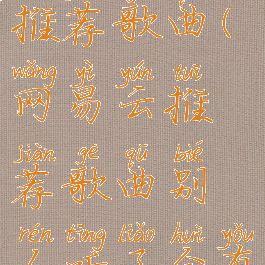 推荐歌曲(
wǎng yì yún tuī
网易云推
jiàn gē qǔ bié
荐歌曲别
rén tīng liǎo huì yǒu